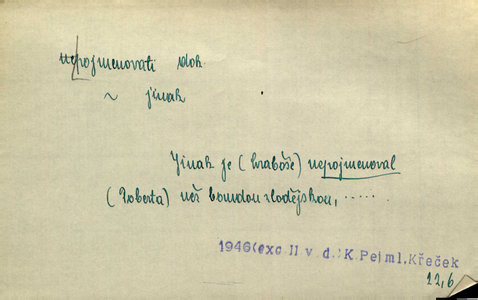 nepojmenovati dok.
~ jinak
Jinak je (hraboše) nepojmenoval
(Roberta) než bandou zlodějskou, .....
1946 (exc. II v. d.) K. Pejml, Křeček
12,6